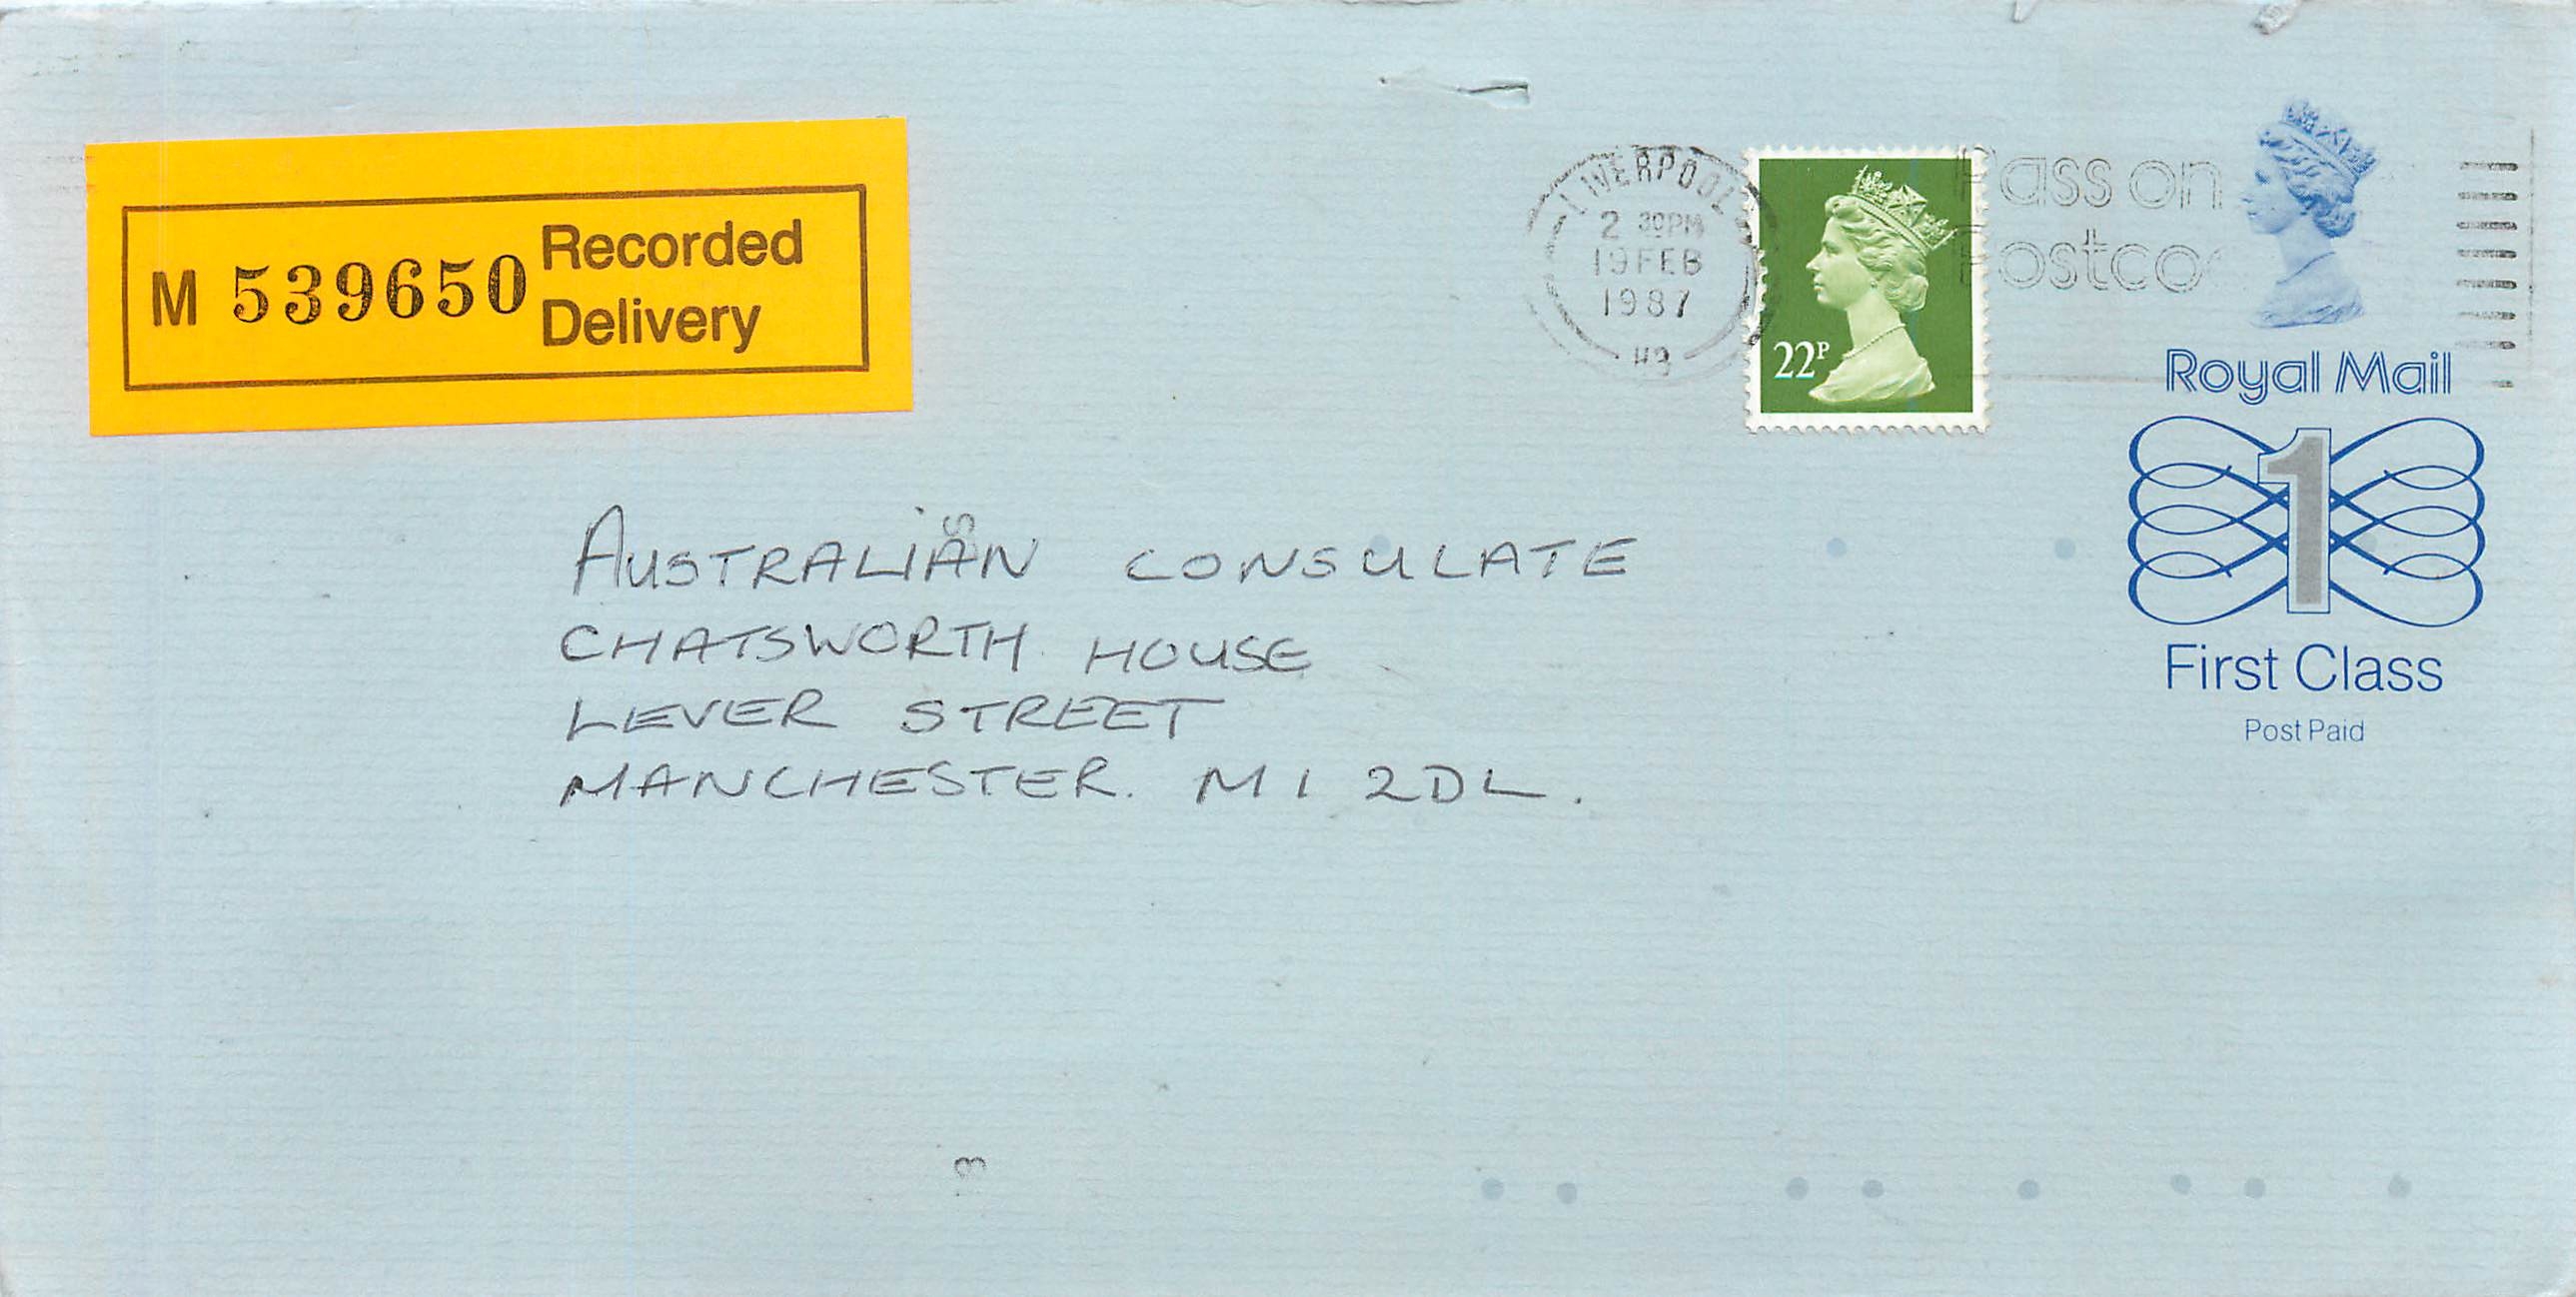 M 539650 Recorded
Delivery
LIVERPOOL
2 30PM
19 FEB
1987
22P
Royal Mail
1
First Class
Post Paid
AUSTRALIAN CONSULATE
CHATSWORTH HOUSE
LEVER STREET
MANCHESTER. M1 2DL.